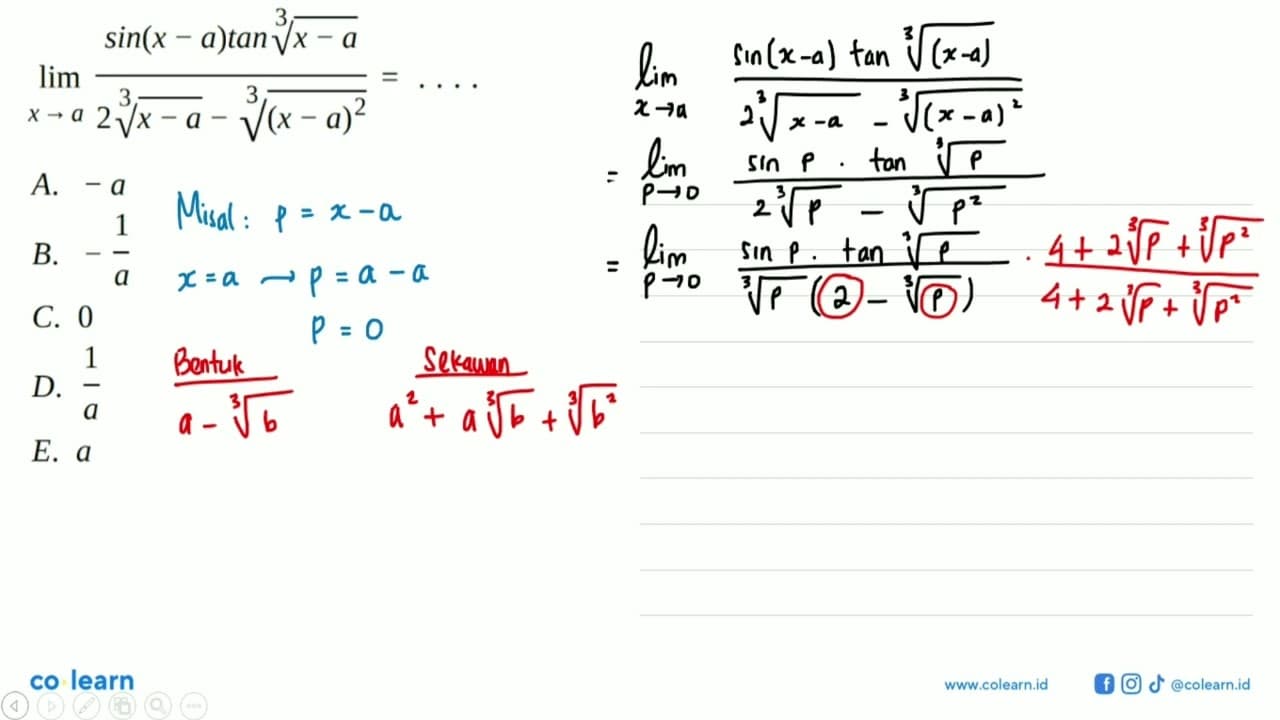 lim x → a sin(x − a)tan ∛(x − a) / 2∛(x − a) − ∛((x − a)²) = . . . .
A. − a
B. − 1/a
C. 0
D. 1/a
E. a
Misal : p = x − a
x = a → p = a − a
p = 0
Bentuk
a − ∛b
Sekawan
a² + a∛b + ∛b²
lim x→a sin(x−a) tan ∛(x−a) / 2∛(x−a) − ∛(x−a)²
= lim p→0 sin p . tan ∛p / 2∛p − ∛p²
= lim p→0 sin p . tan ∛p / ∛p (2 − ∛p) . 4 + 2∛p + ∛p² / 4 + 2∛p + ∛p²
co learn
www.colearn.id
@colearn.id